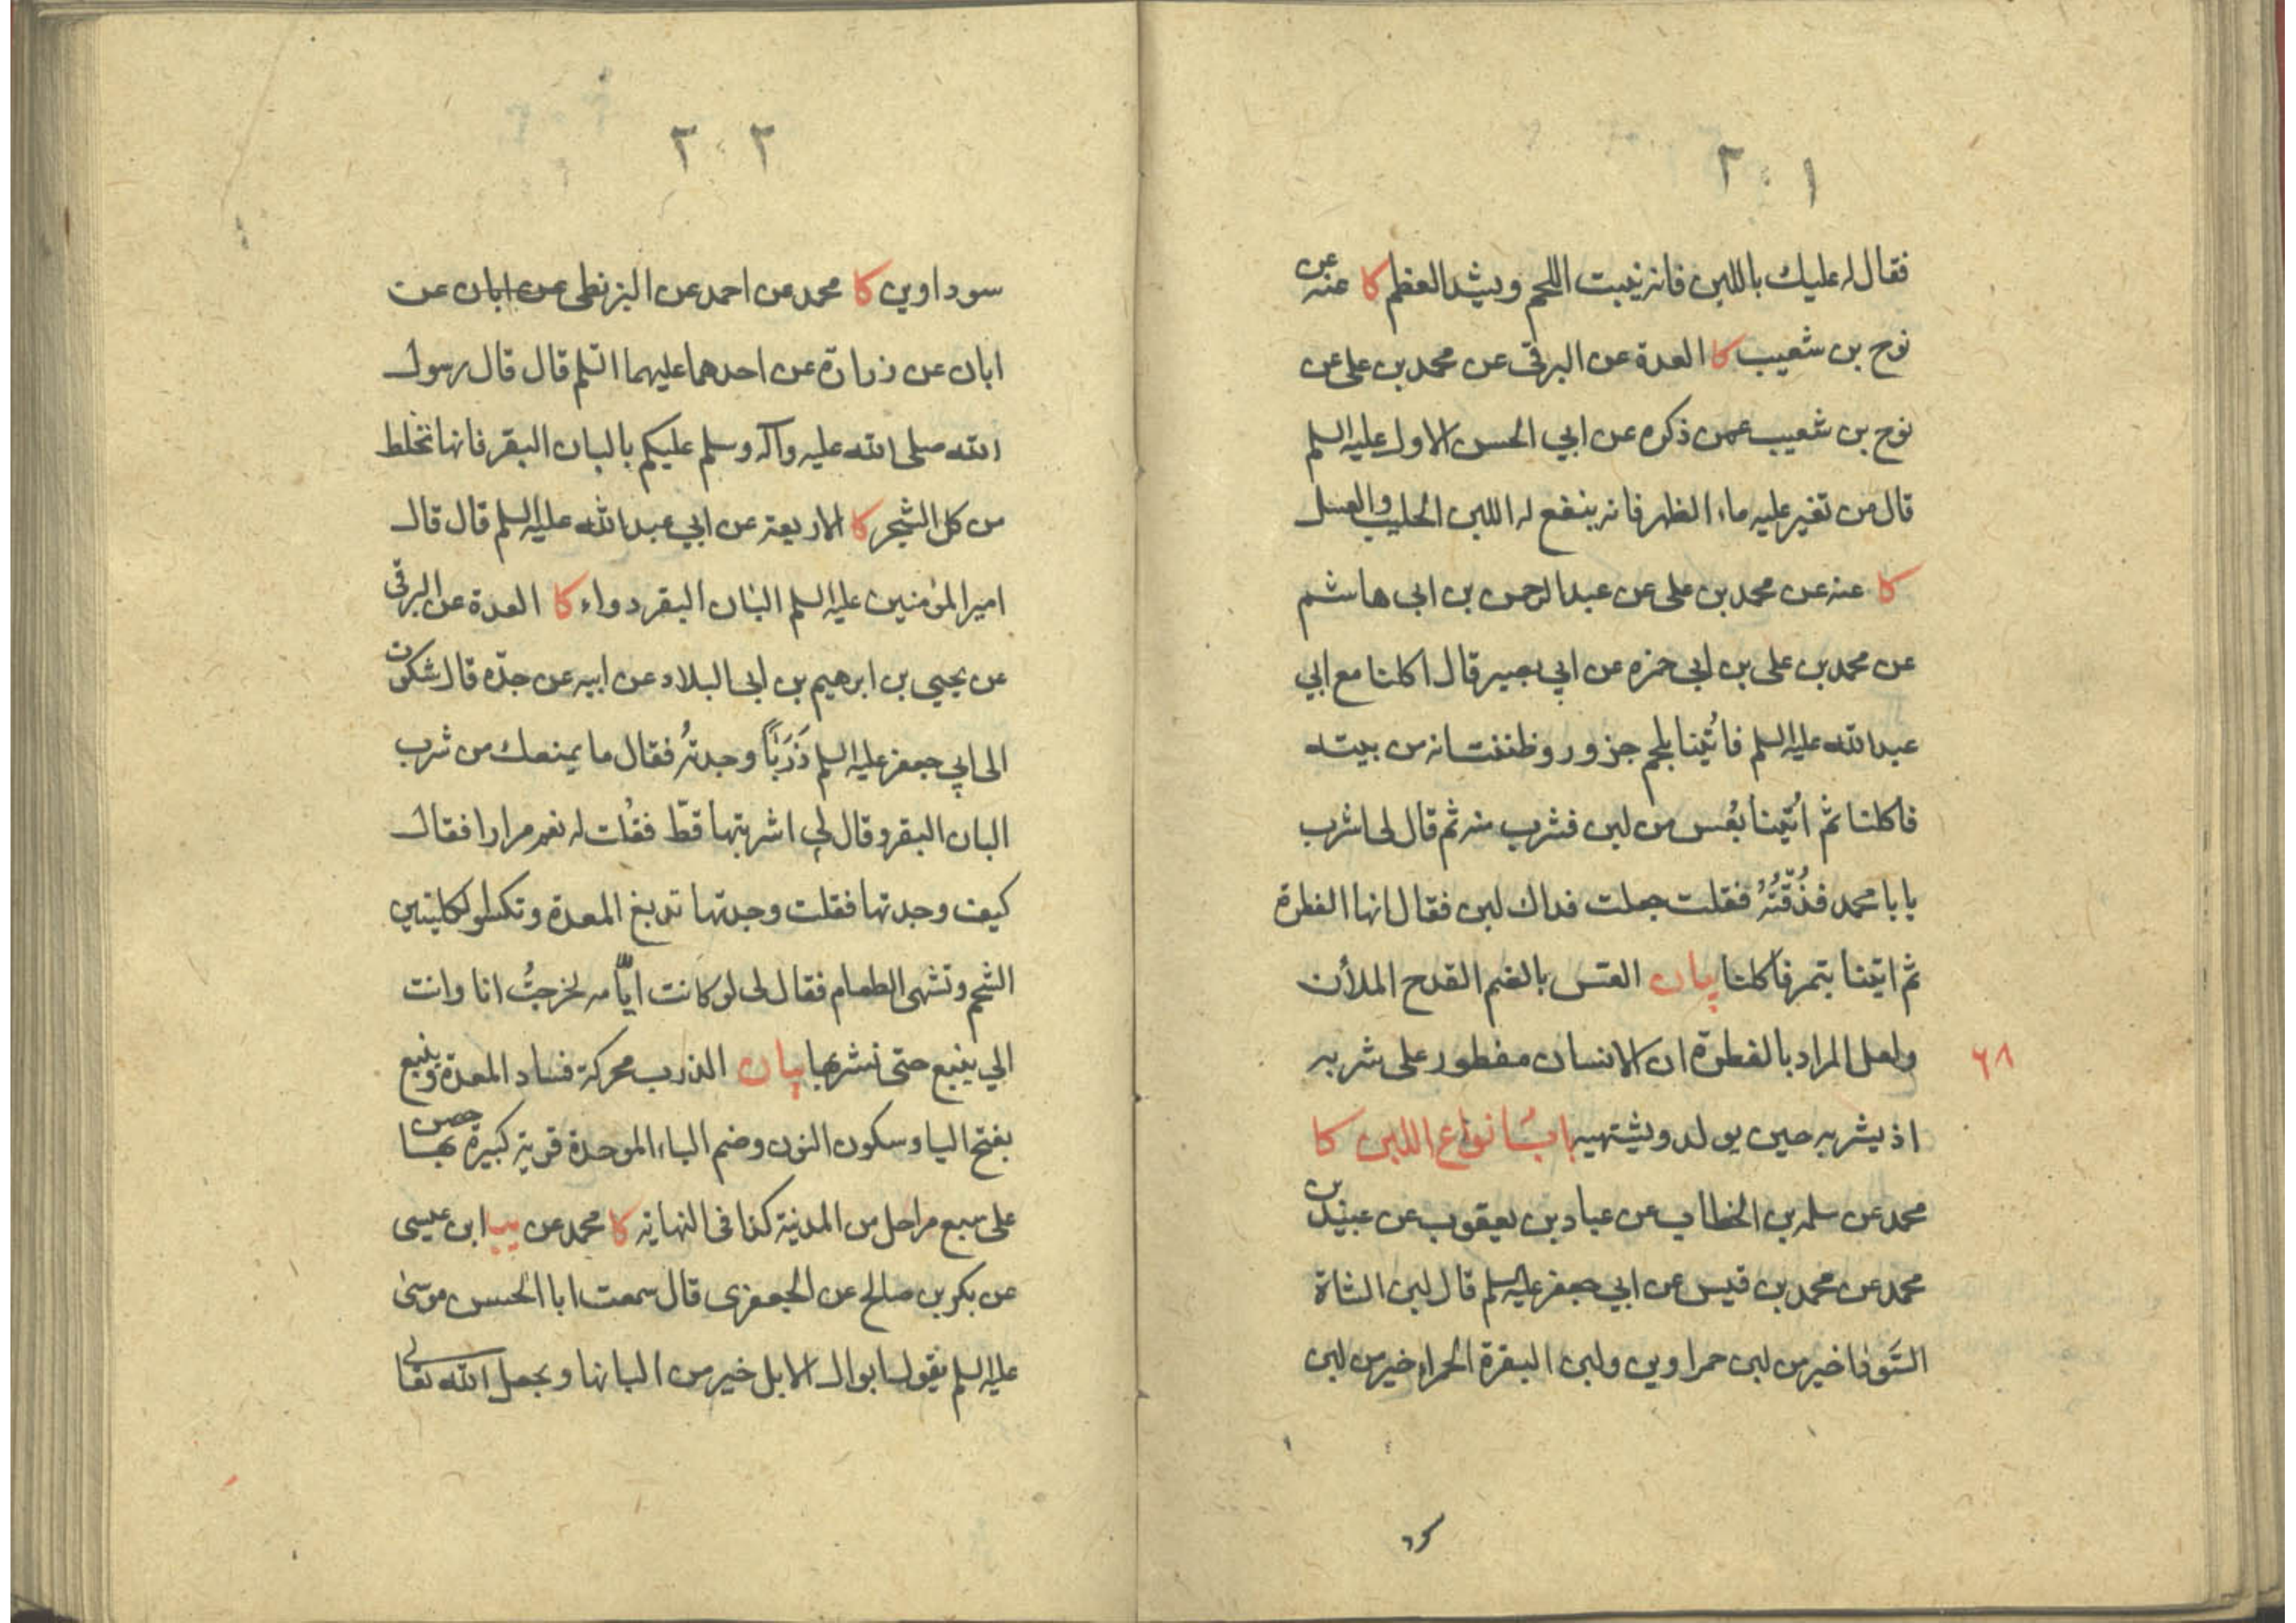 ٢٠١
فقال له عليك باللبن فانه ينبت اللحم ويشد العظم كا عنه عن
نوح بن شعيب كا العدة عن البرقى عن محمد بن على عن
نوح بن شعيب عمن ذكره عن ابي الحسن الاول عليه السلم
قال من تغير عليه ماء الظهر فانه ينفع له اللبن الحليب والعسل
كا عنه عن محمد بن على عن عبد الرحمن بن ابى هاشم
عن محمد بن على بن ابي حمزه عن ابي بصير قال اكلنا مع ابي
عبد الله عليه السلم فاُتينا بلحم جزور وظننت انه من بيته
فاكلنا ثم اُتينا بعُس من لبن فشرب منه ثم قال لى اشرب
يا با محمد فذُقتُهُ فقلت جعلت فداك لبن فقال انها الفطرة
ثم اتينا بتمر فاكلنا بيان العس بالضم القدح الملأن
ولعل المراد بالفطرة ان الانسان مفطور على شربه
٦٨
اذ يشربه حين يولد ويشتهيه باب انواع اللبن كا
محمد عن سلمه بن الخطاب عن عباد بن يعقوب عن عبيد بن
محمد عن محمد بن قيس عن ابي جعفر عليه السلم قال لبن الشاة
السَّودا خير من لبن حمراوين ولبن البقرة الحمراء خير من لبن
٢٠٢
سوداوين كا محمد عن احمد عن البزنطى عن ابان عن
ابان عن زرارة عن احدهما عليهما السلم قال قال رسول
الله صلى الله عليه وآله وسلم عليكم بالبان البقر فانها تخلط
من كل الشجر كا الاربعة عن ابي عبد الله عليه السلم قال قال
امير المؤمنين عليه السلم البان البقر دواء كا العدة عن البرقى
عن يحيي بن ابرهيم بن ابى البلاد عن ابيه عن جدّه قال شكوت
الى ابي جعفر عليه السلم ذَرَباً وجدتُه فقال ما يمنعك من شرب
البان البقر وقال لي اشربتها قطّ فقلت له نعم مرارا فقال
كيف وجدتها فقلت وجدتها تدبغ المعدة وتكسو الكليتين
الشحم وتشهى الطعام فقال لى لو كانت ايّامه لخرجتُ انا وانت
الي ينبع حتى نشربها بيان الذرب محركة فساد المعدة وينبع
بفتح اليا وسكون النون وضم الباء الموحدة قرية كبيرة بها حصن
على سبع مراحل من المدينة كذا فى النهاية كا محمد عن ابن عيسى
عن بكر بن صالح عن الجعفرى قال سمعت ابا الحسن موسى
عليه السلم يقول ابوال الابل خير من البانها ويجعل الله تعالى